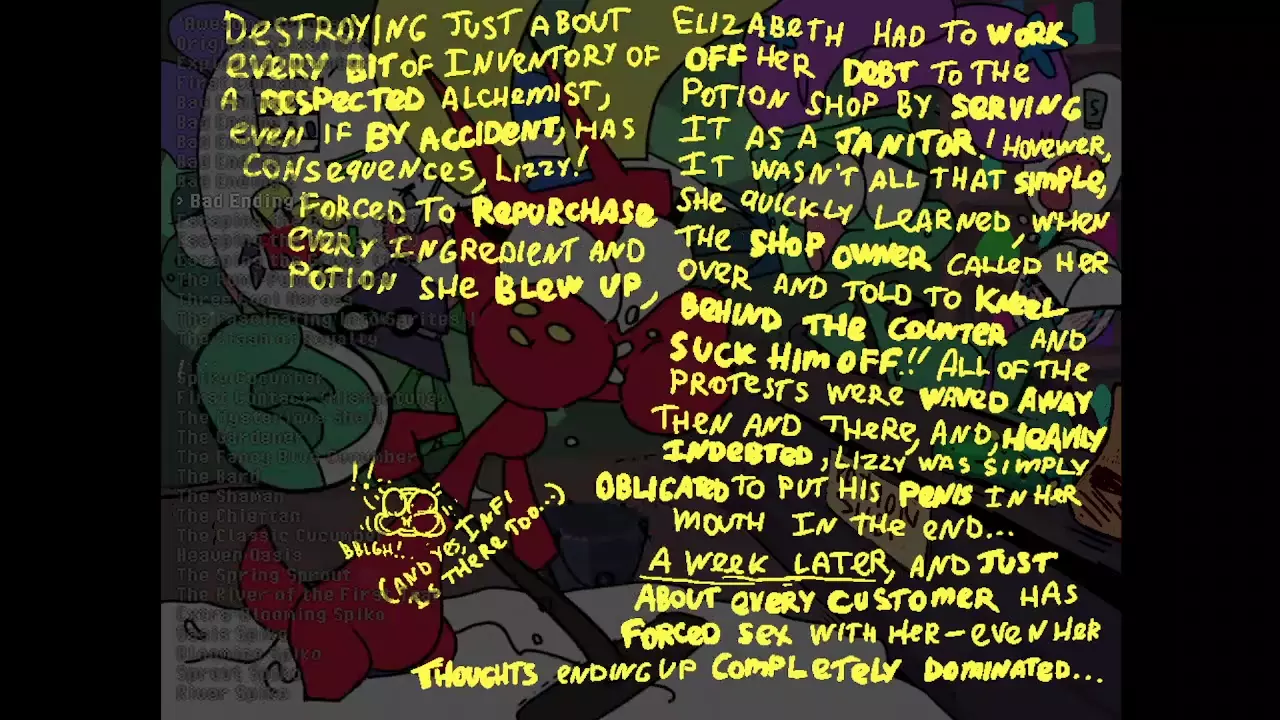 DESTROYING JUST ABOUT
EVERY BIT OF INVENTORY OF
A RESPECTED ALCHEMIST,
EVEN IF BY ACCIDENT, HAS
CONSEQUENCES, LIZZY!
FORCED TO REPURCHASE
EVERY INGREDIENT AND
POTION SHE BLEW UP,
ELIZABETH HAD TO WORK
OFF HER DEBT TO THE
POTION SHOP BY SERVING
IT AS A JANITOR! HOVEWER,
IT WASN'T ALL THAT SIMPLE,
SHE QUICKLY LEARNED, WHEN
THE SHOP OWNER CALLED HER
OVER AND TOLD TO KNEEL
BEHIND THE COUNTER AND
SUCK HIM OFF!! ALL OF THE
PROTESTS WERE WAVED AWAY
THEN AND THERE, AND, HEAVILY
INDEBTED, LIZZY WAS SIMPLY
OBLIGATED TO PUT HIS PENIS IN HER
MOUTH IN THE END...
A WEEK LATER, AND JUST
ABOUT EVERY CUSTOMER HAS
FORCED SEX WITH HER-EVEN HER
THOUGHTS ENDING UP COMPLETELY DOMINATED...
!!
BBLGH!
(AND YES, INFI
IS THERE TOO..:)
> Bad Ending
The Fascinating Info Sprites!!
The Stash of Royalty
Spiky Cucumber
First Contact - Misfortunes
The Mysterious Shell
The Gardener
The Fancy Blue Cucumber
The Bard
The Shaman
The Chieftan
The Classic Cucumber
Heaven Oasis
The Spring Sprout
The River of the First
Extra Blooming Spiko
Oasis Spiko
Blooming Spiko
Sprout Spiko
River Spiko